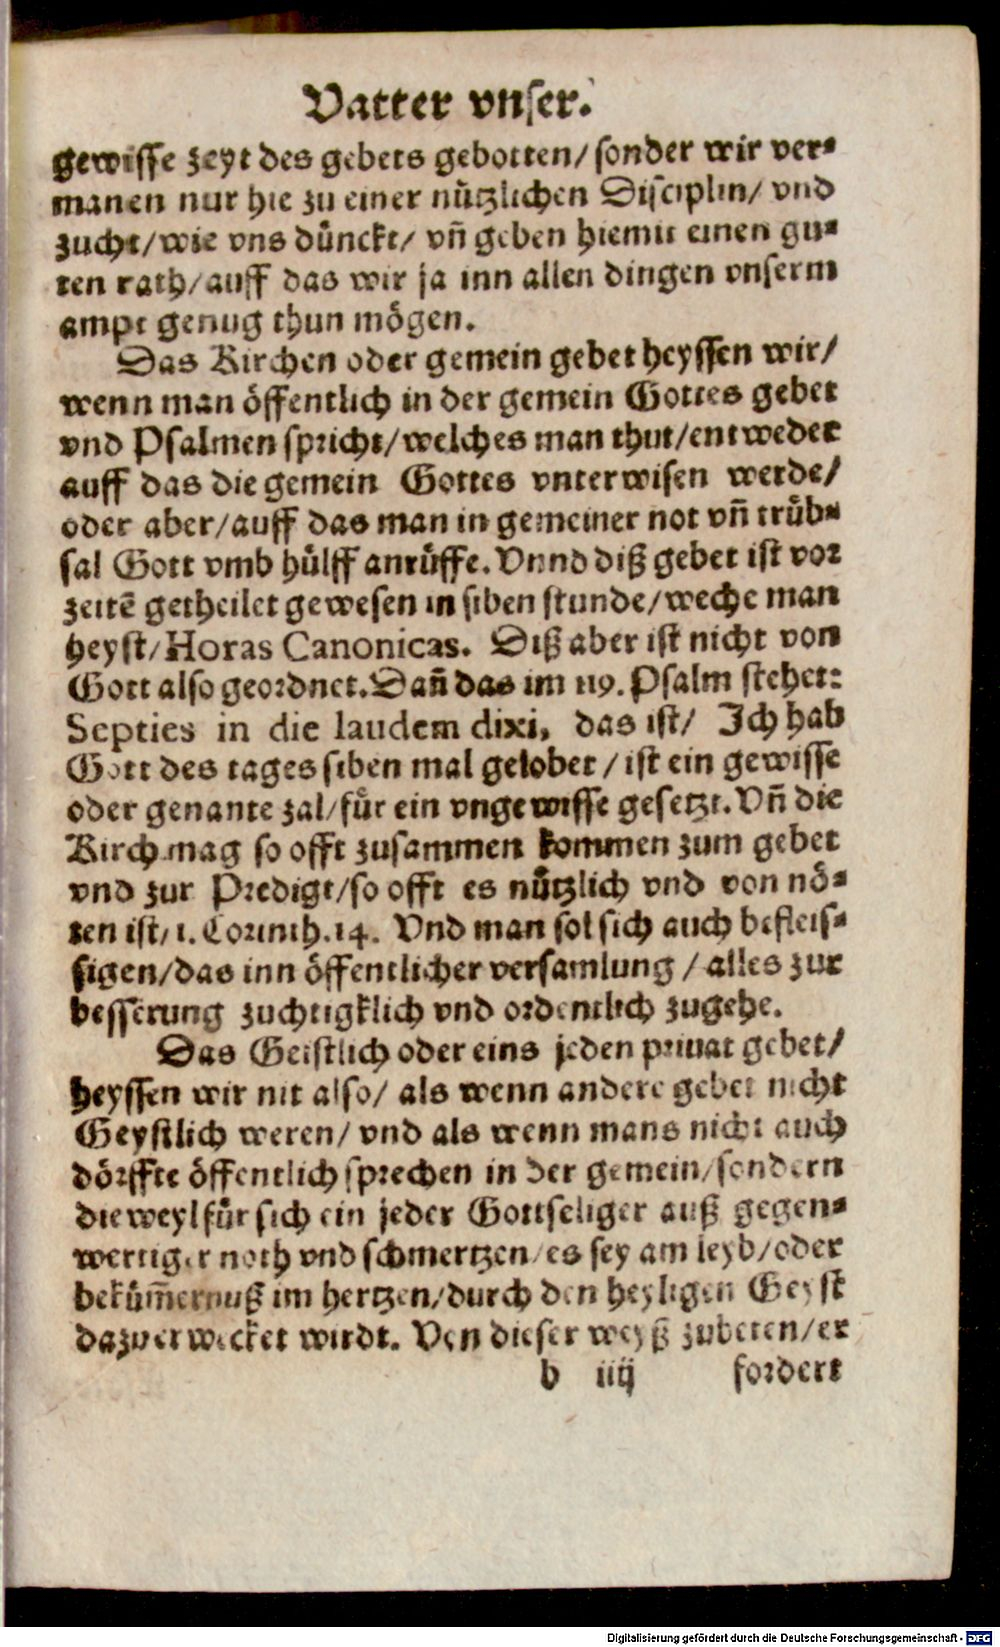 Vatter vnser.
gewisse zeyt des gebets gebotten/ sonder wir ver-
manen nur hie zu einer nützlichen Disciplin/ vnd
zucht/ wie vns dünckt/ vñ geben hiemit einen gu-
ten rath/ auff das wir ja inn allen dingen vnserm
ampt genug thun mögen.
Das Kirchen oder gemein gebet heyssen wir/
wenn man öffentlich in der gemein Gottes gebet
vnd Psalmen spricht/ welches man thut/ entweder
auff das die gemein Gottes vnterwisen werde/
oder aber/ auff das man in gemeiner not vñ trüb-
sal Gott vmb hülff anrüffe. Vnnd diß gebet ist vor
zeitē getheilet gewesen in siben stunde/ weche man
heyst/ Horas Canonicas. Diß aber ist nicht von
Gott also geordnet. Dañ das im 119. Psalm stehet:
Septies in die laudem dixi, das ist/ Ich hab
Gott des tages siben mal gelobet / ist ein gewisse
oder genante zal/ für ein vngewisse gesetzt. Vñ die
Kirch mag so offt zusammen kommen zum gebet
vnd zur Predigt/ so offt es nützlich vnd von nö-
ten ist/ 1. Corinth. 14. Vnd man sol sich auch befleis-
sigen/ das inn öffentlicher versamlung / alles zur
besserung zuchtigklich vnd ordentlich zugehe.
Das Geistlich oder eins jeden priuat gebet/
heyssen wir nit also/ als wenn andere gebet nicht
Geystlich weren/ vnd als wenn mans nicht auch
dörffte öffentlich sprechen in der gemein/ sondern
die weyl für sich ein jeder Gottseliger auß gegen-
wertiger noth vnd schmertzen/ es sey am leyb/ oder
bekümm̄ernuß im hertzen/ durch den heyligen Geyst
dazu erwecket wirdt. Von dieser weyß zubeten/ er
b iiij fordert
Digitalisierung gefördert durch die Deutsche Forschungsgemeinschaft - DFG